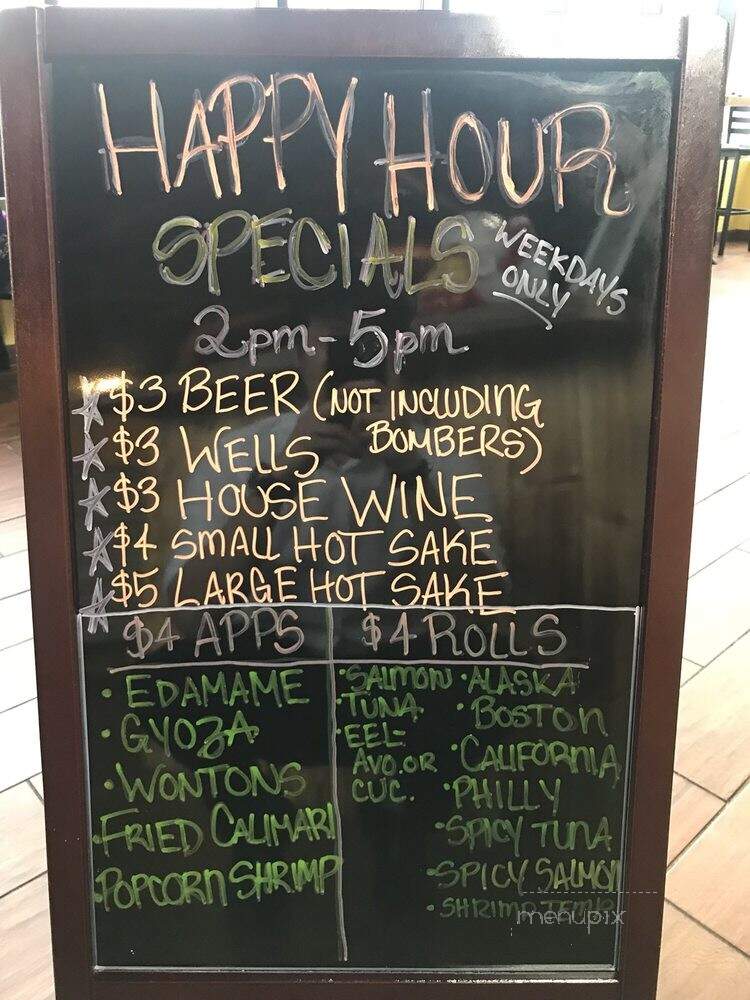 HAPPY HOUR
SPECIALS
WEEKDAYS
ONLY
2pm - 5pm
$3 BEER (NOT INCLUDING
BOMBERS)
$3 WELLS
$3 HOUSE WINE
$4 SMALL HOT SAKE
$5 LARGE HOT SAKE
$4 APPS
• EDAMAME
• GYOZA
• WONTONS
• FRIED CALIMARI
• POPCORN SHRIMP
$4 ROLLS
• SALMON
• TUNA
• EEL-
AVO. OR
CUC.
• ALASKA
• BOSTON
• CALIFORNIA
• PHILLY
• SPICY TUNA
• SPICY SALMON
• SHRIMP TEMP
menupix